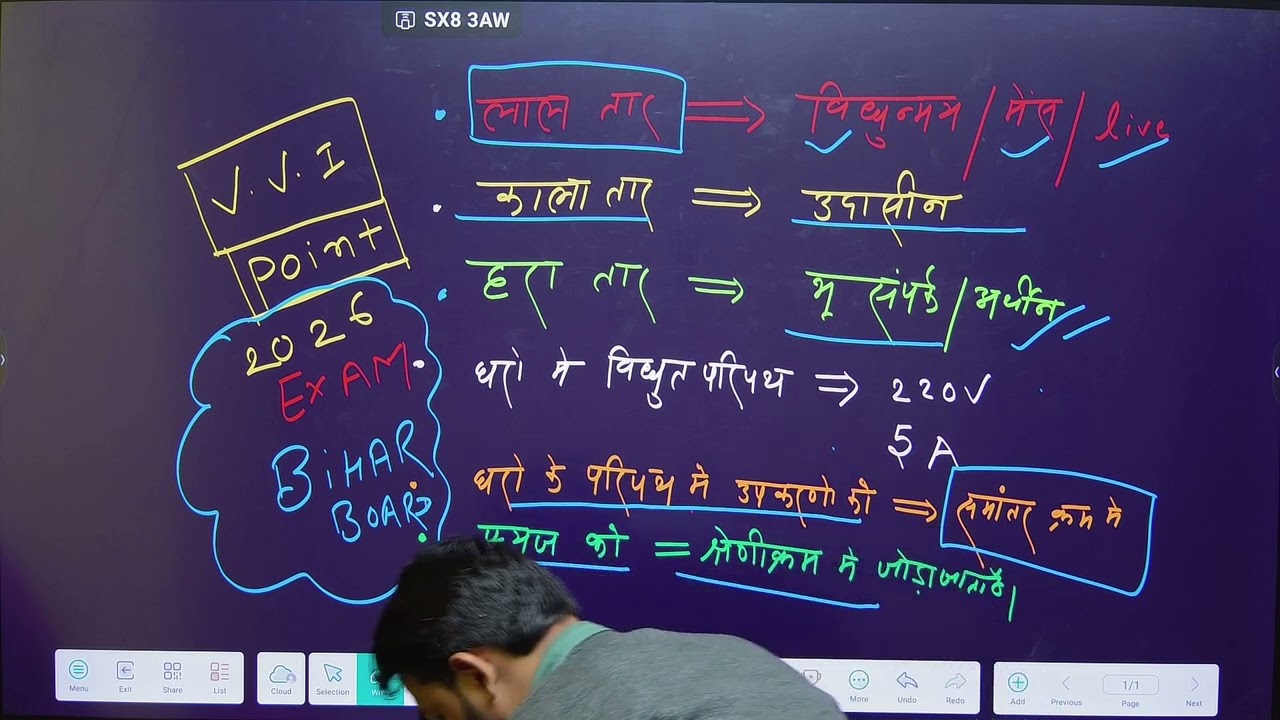 SX8 3AW
लाल तार ⇒ विद्युन्मय / मेंस / live
V.V.I
काला तार ⇒ उदासीन
Point
हरा तार ⇒ भू संपर्क / अर्थीन
2026
EXAM
घरो मे विद्युत परिपथ ⇒ 220V
5 A
BIHAR
BOARD
घरो के परिपथ मे उपकरणो को ⇒ समांतर क्रम मे
फ्यूज को = श्रेणीक्रम मे जोड़ा जाता है।
Menu Exit Share List Cloud Selection More Undo Redo Add Previous 1/1 Page Next